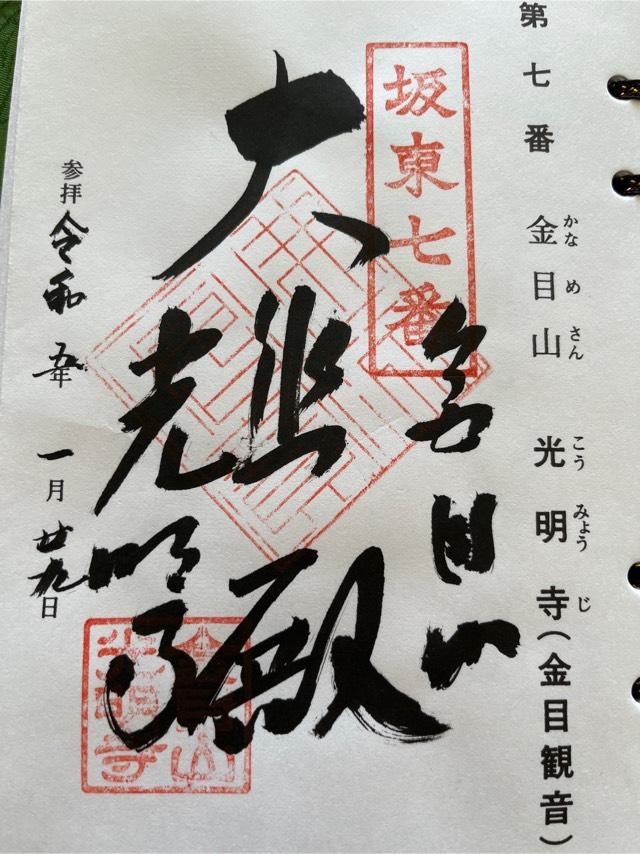 第七番 金目山 光明寺(金目観音)
かなめさん こうみょうじ
坂東七番
金目山
大悲殿
光明
参拝 令和 五年 一月 廿九日
金目山
光明寺